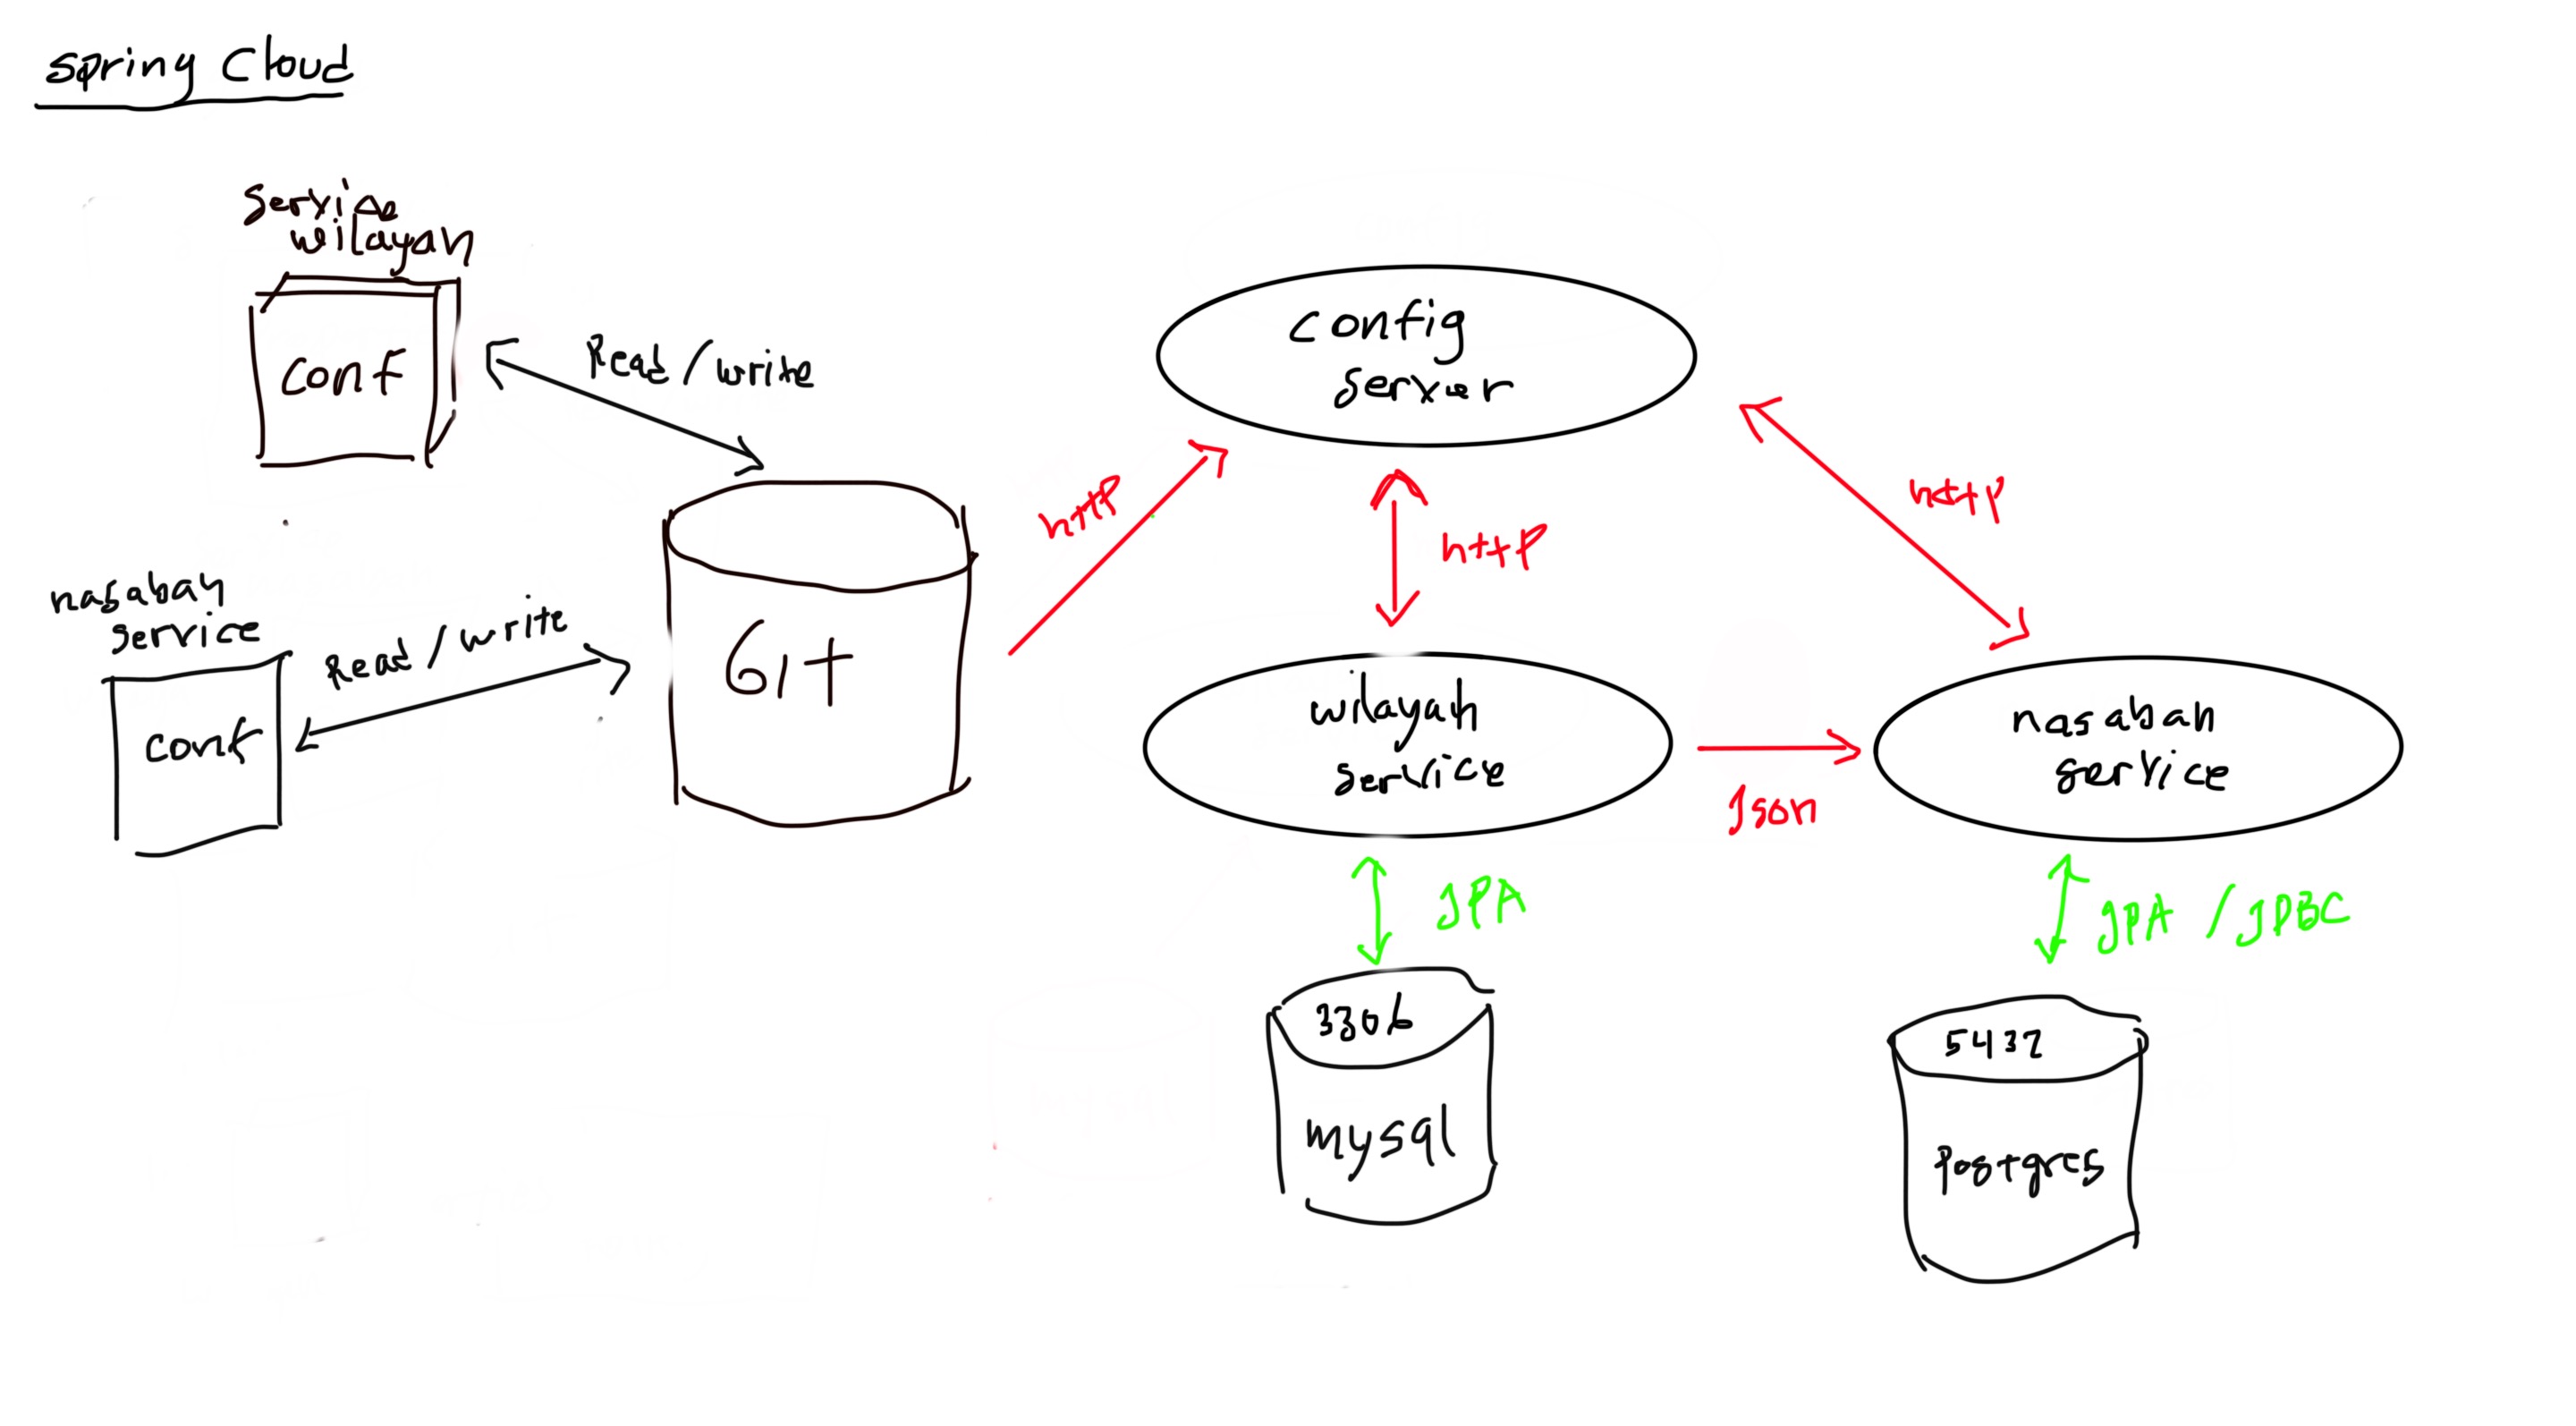 Spring Cloud
Service
wilayah
conf
Read / write
nasabah
service
conf
Read / write
Git
http
config
server
http
http
wilayah
service
Json
nasabah
service
JPA
JPA / JDBC
3306
mysql
5432
Postgres